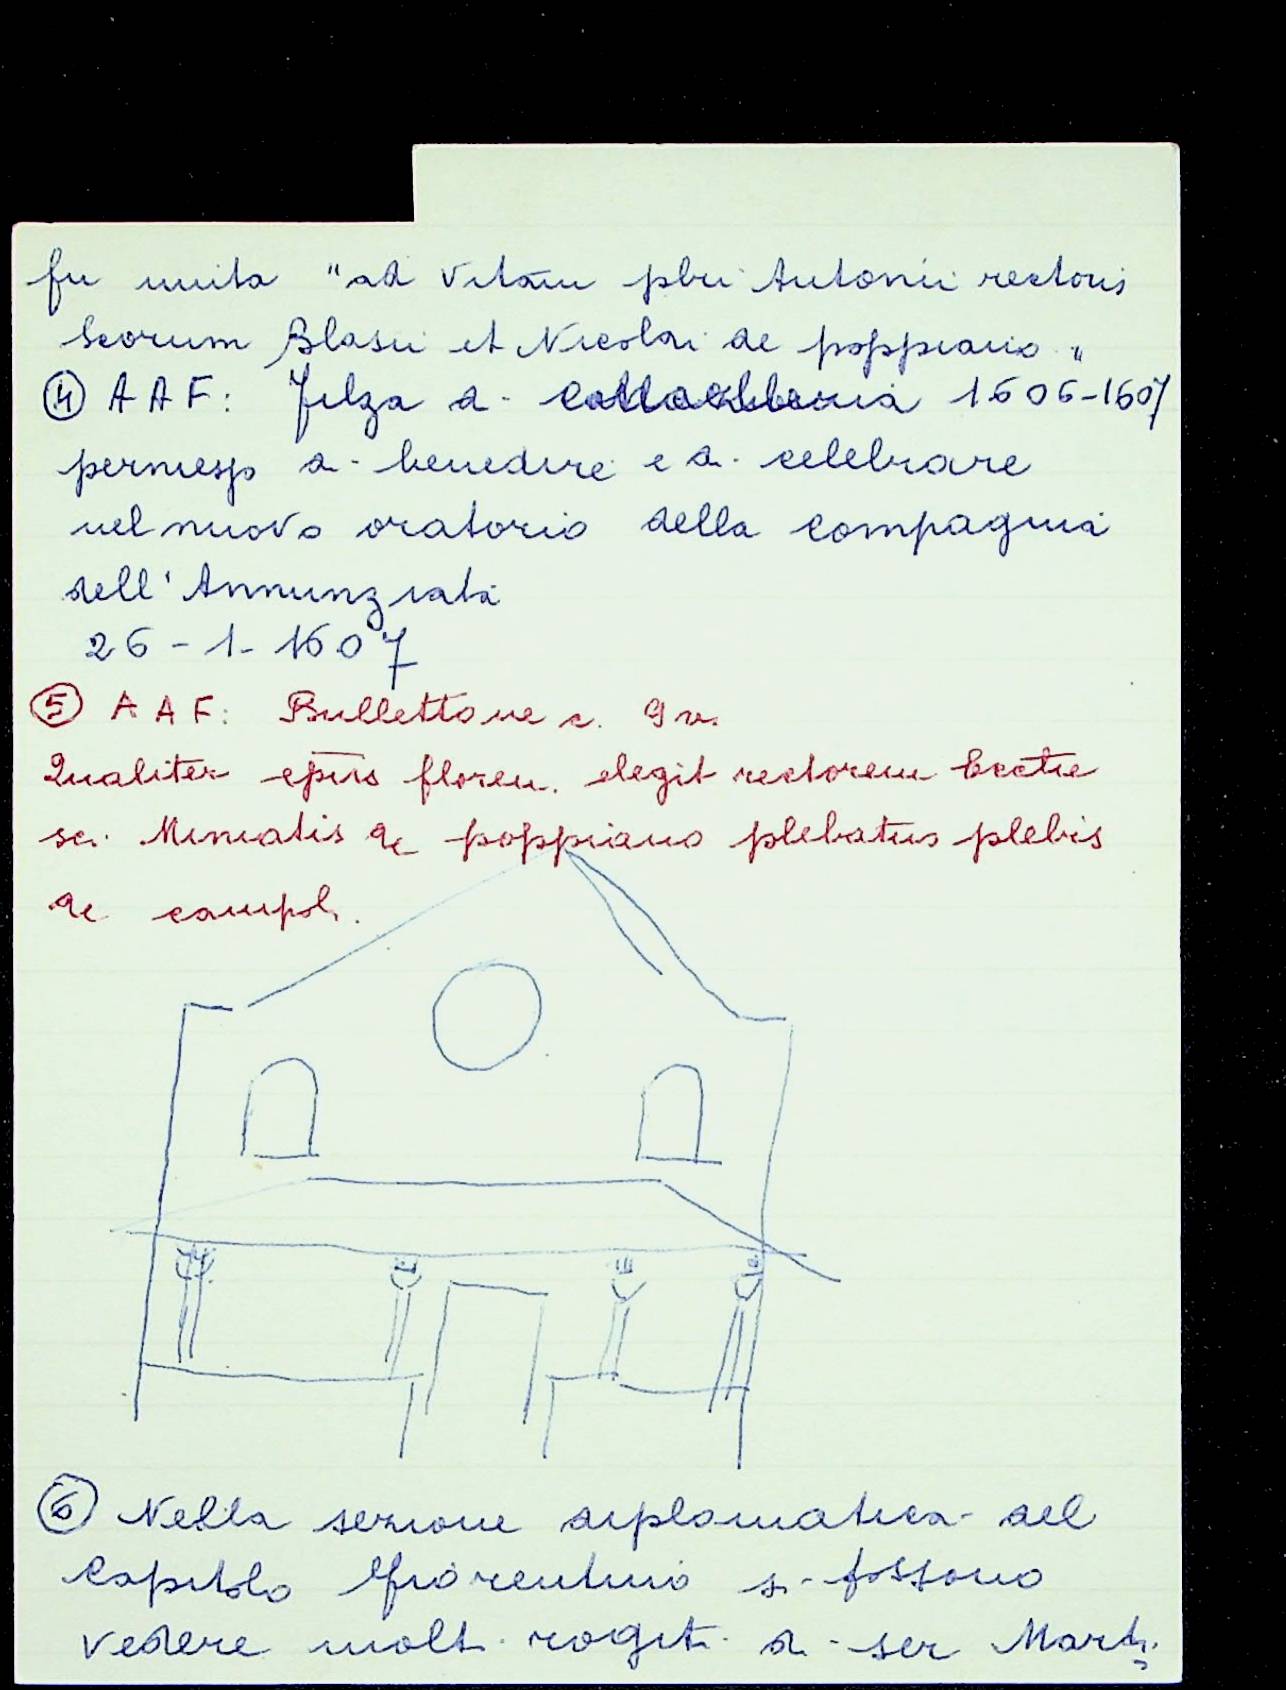 fu unita "ad vitam pbri Antonii rectoris
scorum Blasii et Nicolai de poppiano"
④ AAF: Filza di 1606-1607
permesso di benedire e di celebrare
nel nuovo oratorio della compagnia
dell'Annunziata
26-1-1607
⑤ AAF: Bullettone c. 9v.
Qualiter epūs floren. elegit rectorem Eccłie
sc. Miniatis de poppiano plebatus plebis
de campoli.
⑥ Nella sezione diplomatica del
Capitolo fiorentino si possono
vedere molti rogiti di ser